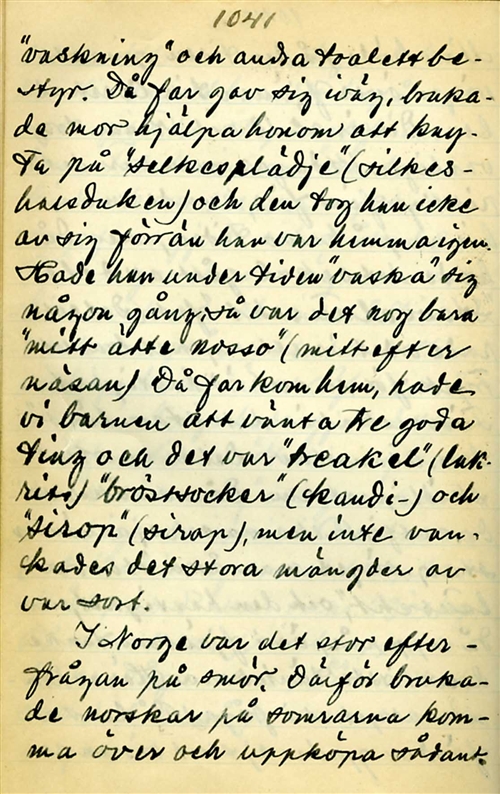 1041
"vaskning" och andra toalettbe-
styr. Då far gav sig iväg, bruka-
de mor hjälpa honom att kny-
ta på "selkesplädje" (silkes-
halsduken) och den tog han icke
av sig förrän han var hemma igen.
Hade han under tiden "vaska" sig
någon gång, så var det nog bara
"mitt ätte nosso" (mitt efter
näsan) Då far kom hem, hade
vi barnen att vänta tre goda
ting och det var "treakel" (lak-
rits) "bröstsocker" (kandi-) och
"sirop" (sirap), men inte van-
kades det stora mängder av
var sort.
I Norge var det stor efter-
frågan på smör. Därför bruka-
de norskar på somrarna kom-
ma över och uppköpa sådant.